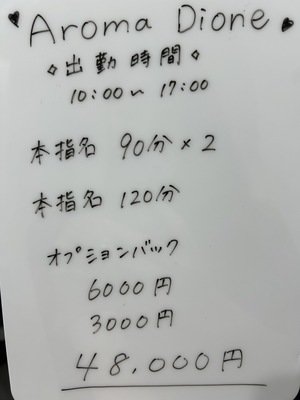 ♥ Aroma Dione ♥
◇出勤時間◇
10:00〜17:00
本指名 90分×2
本指名 120分
オプションバック
6000円
3000円
48,000円